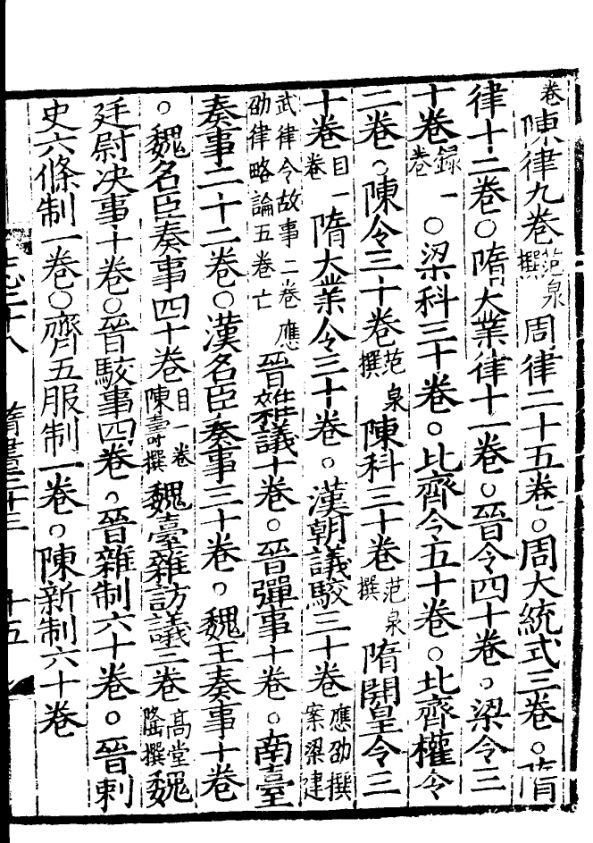 卷陳律九卷范泉撰周律二十五卷○周大統式三卷○隋
律十二卷○隋大業律十一卷○晉令四十卷○梁令三
十卷録一卷○梁科三十卷○北齊令五十卷○北齊權令
二卷○陳令三十卷范泉撰陳科三十卷范泉撰隋開皇令三
十卷目一卷隋大業令三十卷○漢朝議駮三十卷應劭撰案梁建
武律令故事二卷應劭律略論五卷亡晉雜議十卷○晉彈事十卷○南臺
奏事二十二卷○漢名臣奏事三十卷○魏王奏事十卷
○魏名臣奏事四十卷目一卷陳壽撰魏臺雜訪議三卷高堂隆撰魏
廷尉决事十卷○晉駮事四卷○晉雜制六十卷○晉刺
史六條制一卷○齊五服制一卷○陳新制六十卷
十五